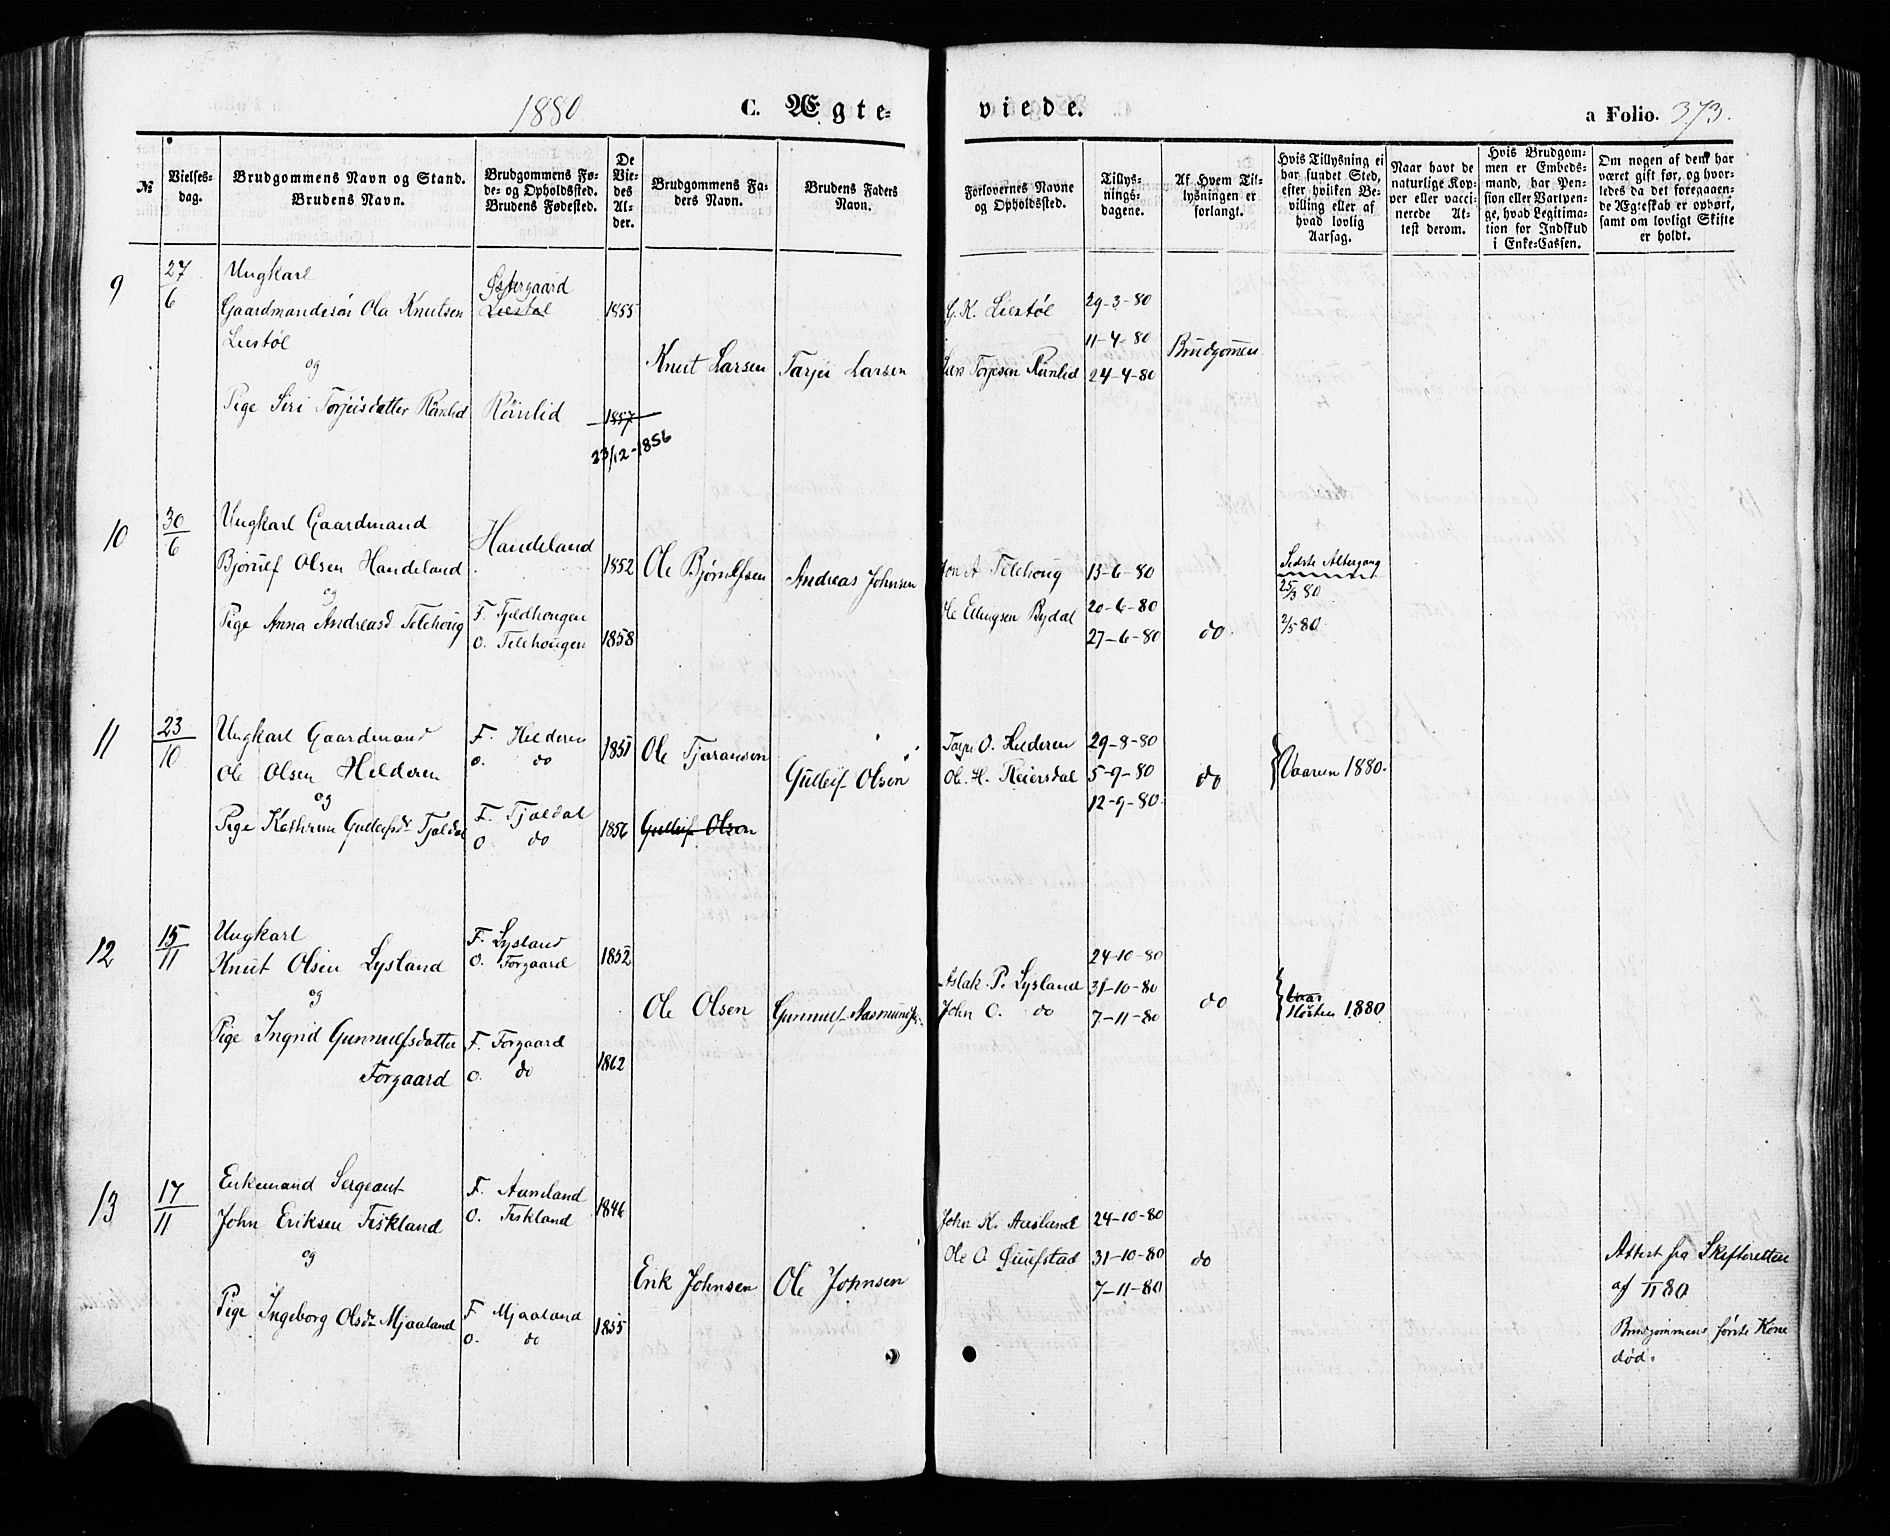 1880 C. Ægte-
viede. a Folio. 373.
№
Vielses-
dag.
Brudgommens Navn og Stand.
Brudens Navn.
Brudgommens Fø-
de- og Opholdssted.
Brudens Fødested.
De
Vie-
des
Al-
der.
Brudgommens Fa-
ders Navn.
Brudens Faders
Navn.
Forlovernes Navne
og Opholdssted.
Tillys-
nings-
dagene.
Af Hvem Til-
lysningen er
forlangt.
Hvis Tillysning ei
har fundet Sted,
efter hvilken Be-
villing eller af
hvad lovlig
Aarsag.
Naar havt de
naturlige Kop-
per eller vacci-
nerede At-
test derom.
Hvis Brudgom-
men er Embeds-
mand, har Pen-
sion eller Vartpen-
ge, hvad Legitima-
tion for Indskud
i Enke-Cassen.
Om nogen af dem har
været gift før, og hvor-
ledes da det foregaaen-
de Ægteskab er ophört,
samt om lovligt Skifte
er holdt.
9
27/6
Ungkarl
Gaardmandssön Ola Knutsen
Liestøl
og
Pige Siri Torjusdatter Rönlid
Østergaard
Liestøl
Rönlid
1855
1857
23/12-1856
Knut Larsen
Tarjei Larsen
G. K. Liestøl
Torjesen Rönlid
29-3-80
11-4-80
24-4-80
Brudgomen
10
30/6
Ungkarl Gaardmand
Bjørulf Olsen Handeland
og
Pige Anna Andreasd. Telehoug
Handeland
F. Tjeldhougen
O. Telehougen
1852
1858
Ole Bjørulfsen
Andreas Johnsen
Jon A Telehoug
Ole Ellingsen Bydal
13-6-80
20-6-80
27-6-80
do
Sidste Altergang
25/3 80
2/5 80
11
23/10
Ungkarl Gaardmand
Ole Olsen Hilderen
og
Pige Kathrine Gulleifsdr Tjaldal
F. Hilderen
O. do
F. Tjaldal
O do
1851
1856
Ole Tjaransen
Gulleif Olsen
Gulleif Olsen
Tarje O. Hilderen
Ole. H. Reiersdal
29-8-80
5-9-80
12-9-80
do
Vaaren 1880.
12
15/11
Ungkarl
Knut Olsen Lysland
og
Pige Ingrid Gunnulfsdatter
Forgaard
F. Lysland
O. Forgaard
F. Forgaard
O. do
1852
1862
Ole Olsen
Gunnulf Aasmunds.
Aslak P. Lysland
John O. do
24-10-80
31-10-80
7-11-80
do
Vaar
Høsten 1880
13
17/11
Enkemand Sergeant
John Eriksen Fiskland
og
Pige Ingeborg Olsdr Mjaaland
F. Aamland
O. Fiskland
F Mjaaland
O. do
1846
1855
Erik Johnsen
Ole Johnsen
John K. Aasland
Ole O.
24-10-80
31-10-80
7-11-80
do
Attest fra Skifteretten
af 1/11 80
Brudgommens første Kone
død.